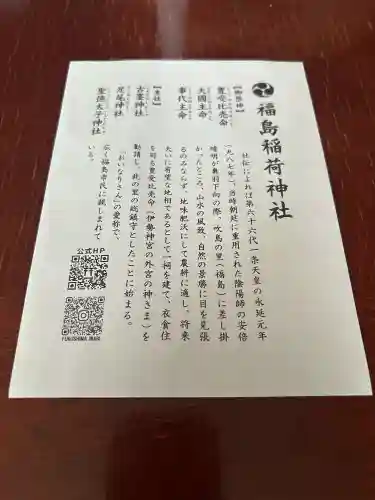 福島稲荷神社
【御祭神】
豊受比売命
大國主命
事代主命
【末社】
古峯神社
足尾神社
聖徳太子神社
社伝によれば第六十六代一条天皇の永延元年
（九八七年）、当時朝廷に重用された陰陽師の安倍
晴明が奥羽下向の際、吹島の里（福島）に差し掛
かったところ、山水の風致、自然の景勝に目を見張
るのみならず、地味肥沃にして農耕に適し、将来
大いに有望な地相であるとして一祠を建て、衣食住
を司る豊受比売命（伊勢神宮の外宮の神さま）を
勧請し、此の里の総鎮守としたことに始まる。
「おいなりさん」の愛称で、
広く福島市民に親しまれて
いる。
公式HP
FUKUSHIMA_INARI